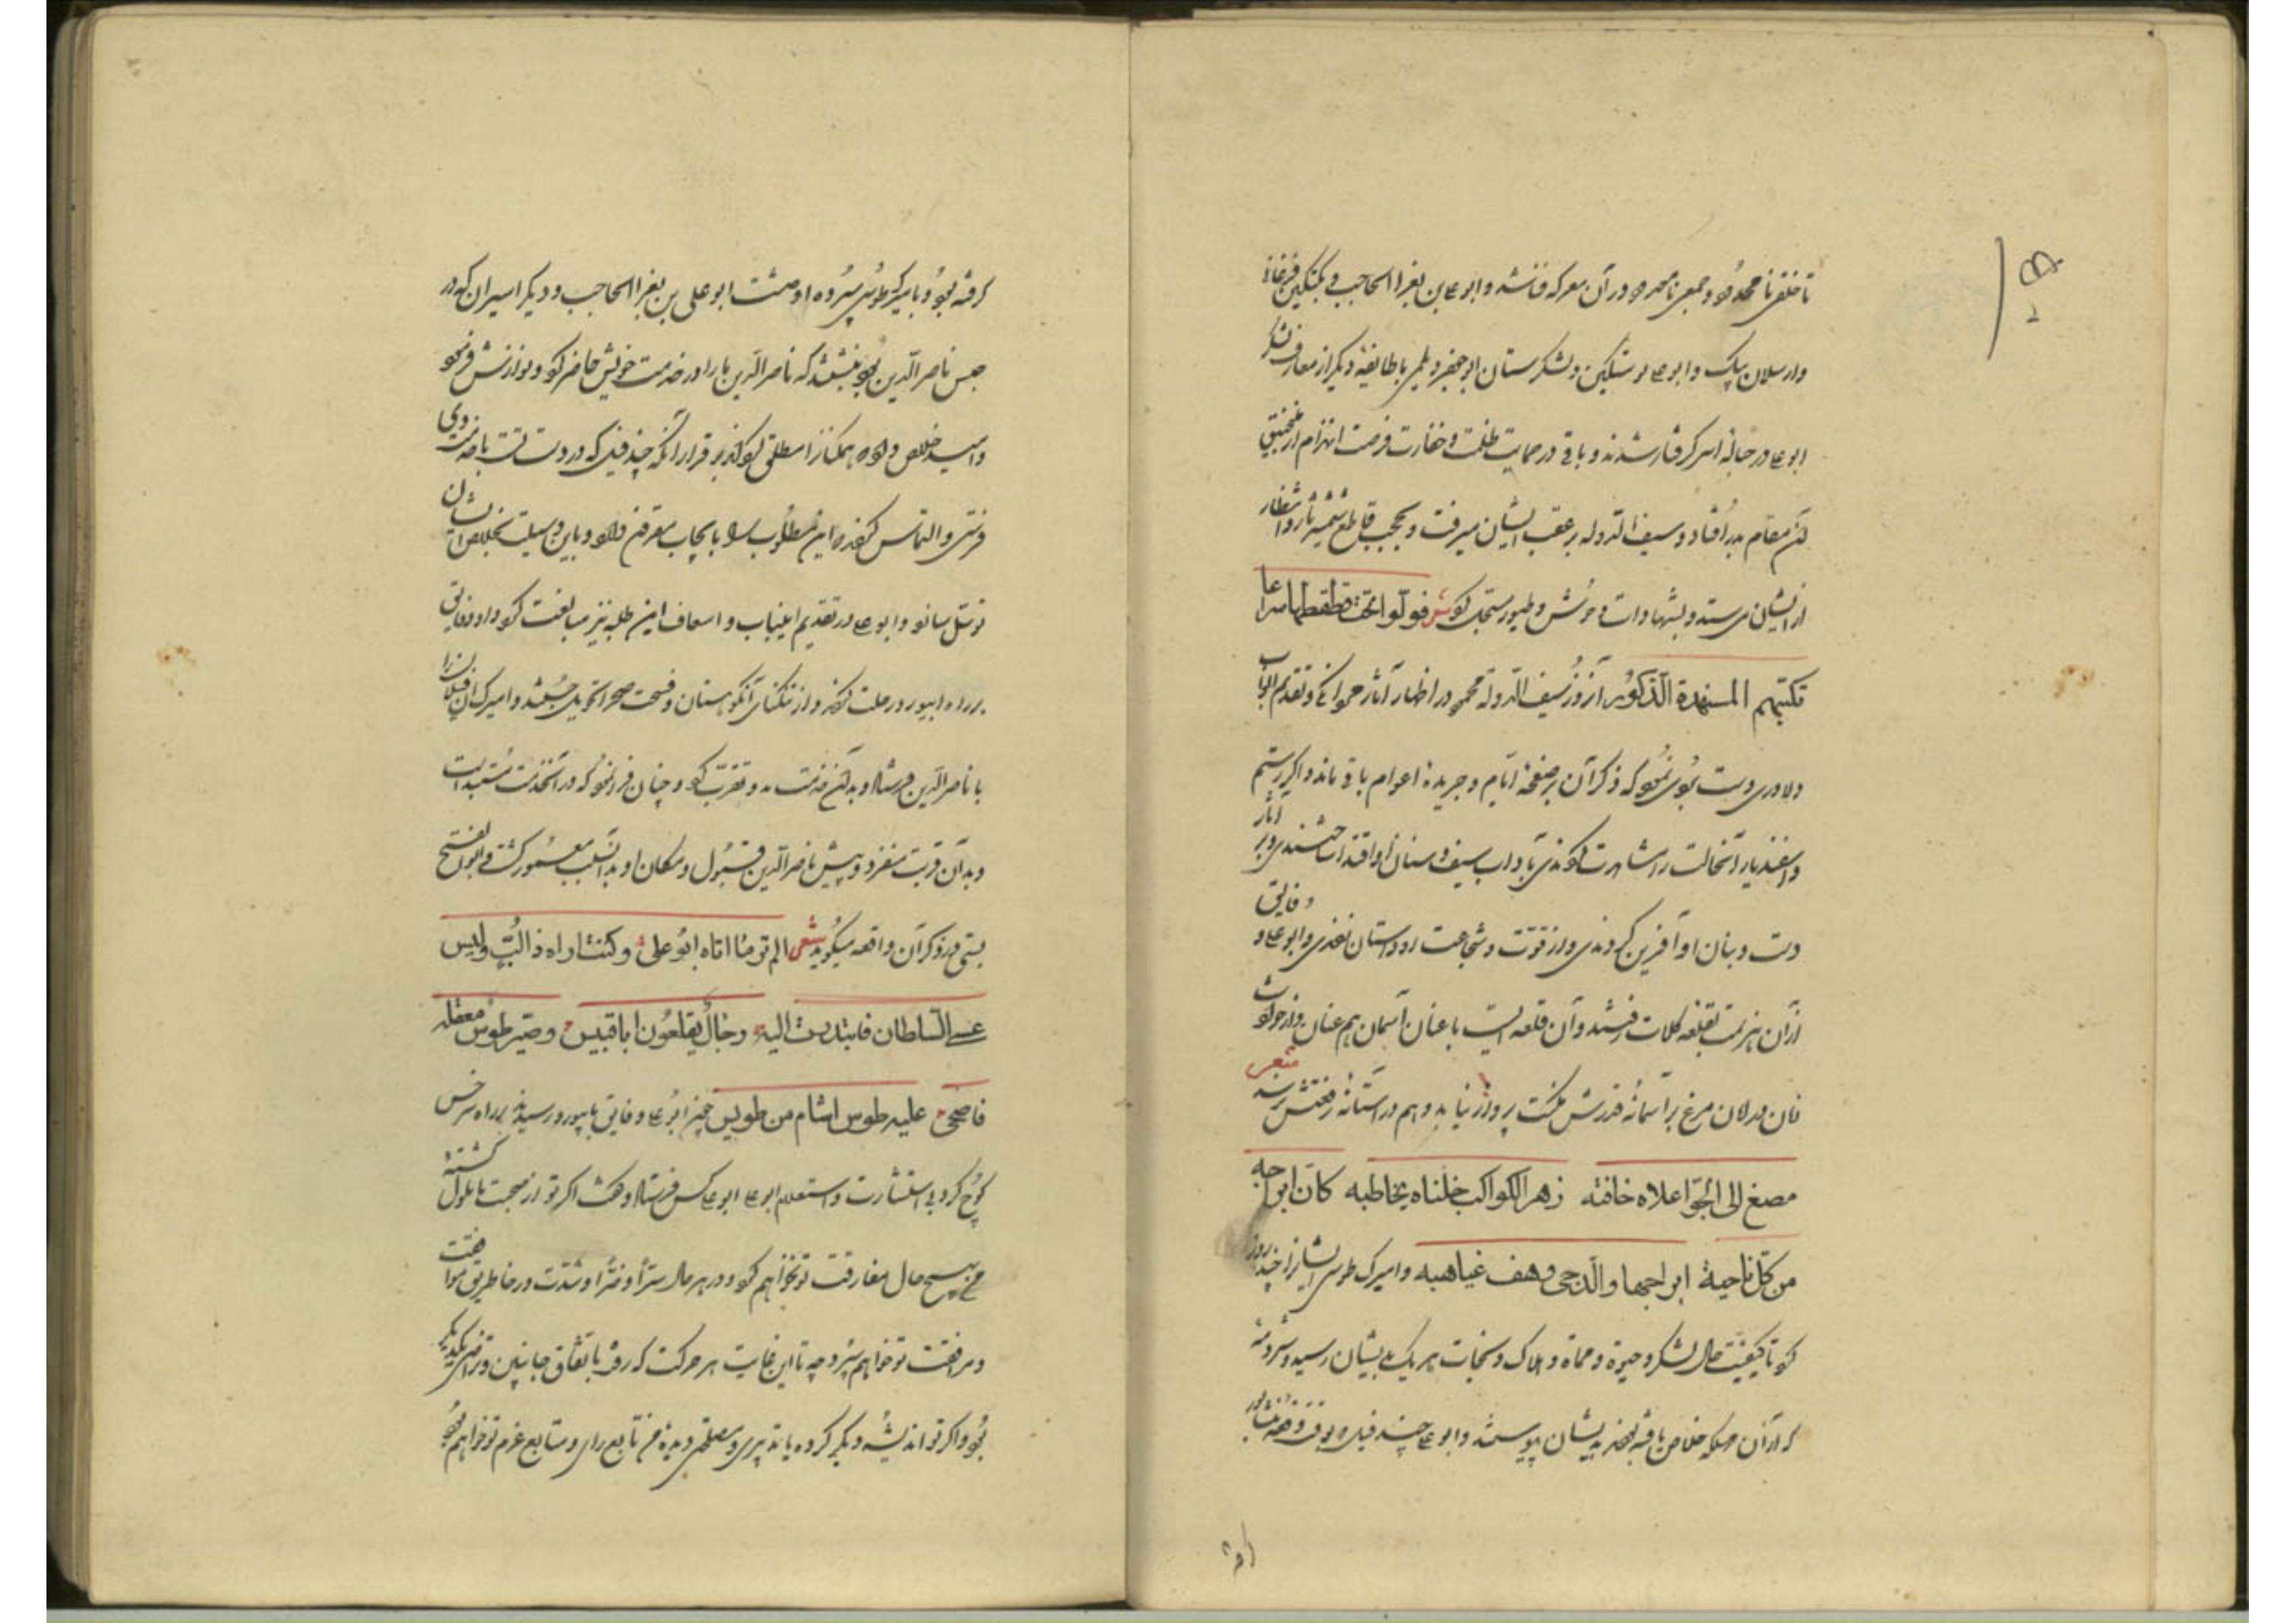 تا خلقی نامحدود و جمعی نامحصور در آن معرکه فانی شد و ابوعلی بن بغرا الحاجب و بکتکین فرغانی
وارسلان بیک و ابوعلی نوشتکین و لشکرستان ابو جعفر دیلمی با طایفهٔ دیگر از معارف لشکر
ابوعلی در حبالهٔ اسر گرفتار شدند و باقی در حمایت ظلمت و خفارت فرصت انهزام از مضیق
آن مقام بدر افتاد و سیف الدوله بر عقب ایشان میرفت و بحجت قاطع شمشیر ثار و انتظار
از ایشان می ستد و بشهادات وحوش و طیور مستحکم کرد شعر فولوا تحت قطقطها سراعا
تکبهم المهندة الذکور آن روز سیف الدوله محمود در اظهار آثار مردانگی و تقدیم ابواب
دلاوری دست بردی نمود که ذکر آن بر صفحهٔ ایام و جریدهٔ اعوام باقی ماند و اگر رستم
و اسفندیار آن حالت را مشاهدت کردندی بآداب سیف و سنان او اقتدا ساختندی و بر آثار
دست و بنان او آفرین کردندی و از قوت و شجاعت او داستان زدندی و ابوعلی و فایق
از آن هزیمت بقلعه کلات رفتند و آن قلعه ایست با عنان آسمان هم عنان و از حوادث
زمان در امان مرغ بر آستانهٔ قدرش بمکنت پرواز نیابد و وهم در آستانهٔ رفعتش نرسد شعر
مصغ الی الجو اعلاه خافته زهر الکواکب خلناه یخاطبه کان ابراجه
من کل ناحیة ابراجها والدجی وهف غیاهبه و امیرک طوسی ایشانرا چند روز
کرد تا کیفیت حال لشکر و حیوة و مماة و هلاک و نجات هر یک بایشان رسید و شرذمهٔ
که از آن مهلکه خلاص یافته بودند بدیشان پیوستند و ابوعلی چند فیل که بوقت وقعه نشابور
گرفته بود و بامیرک طوسی سپرده او داشت ابوعلی بن بغرا الحاجب و دیگر اسیران که در
حبس ناصر الدین بودند بنبشتند که ناصر الدین ما را در خدمت خویش حاضر کرد و نوازش فرمود
و امید خلاص داد و همگنانرا مطلق گرداند بر قرار آنکه چند فیل که در دست تست با خدمت وی
فرستی و التماس کردند که این مطلوب را بایجاب مقرون دارد و باین وسیلت بخلاص ایشان
توسل سازد و ابوعلی در تقدیم این باب و اسعاف این طلبه نیز مبالغت کرد و او و فایق
بر راه ابیورد رحلت کردند و از تنگنای آن کوهستان و فسحت صحرا تحویل جستند و امیرک آن فیلان را
با ناصر الدین فرستاد و بدان خدمت بدو تقرب کرد و چنان فرا نمود که در آن خدمت مستبد است
و بدان قربت منفرد و پیش ناصر الدین مقبول و مکان او بدان سبب معمور گشت و ابوالفتح
بستی در ذکر آن واقعه میگوید شعر الم تر ما اتاه ابو علی و کنت اراه ذا لب و کیس
عصی السلطان فابتدرت الیه رجال یقلعون ابا قبیس و صیر طوس معقله
فاضحی علیه طوس اشام من طویس چون ابوعلی و فایق بابیورد رسیدند بر راه سرخس
کوچ کرد بی استشارت و استعلام ابوعلی ابوعلی کس فرستاد و گفت اگر تو از صحبت ما ملول گشتهٔ
من بهیچ حال مفارقت تو نخواهم کرد و در هر حال سرّا و ضرّا و شدت و رخا طریق موافقت
و مرافقت تو خواهم سپرد چه تا این غایت هر حرکت که رفت باتفاق جانبین و تراضی یکدیگر
بود و اگر تو اندیشهٔ دیگر کرده یا تدبیری و مصلحتی دیدهٔ من تابع رای و متابع عزم تو خواهم بود